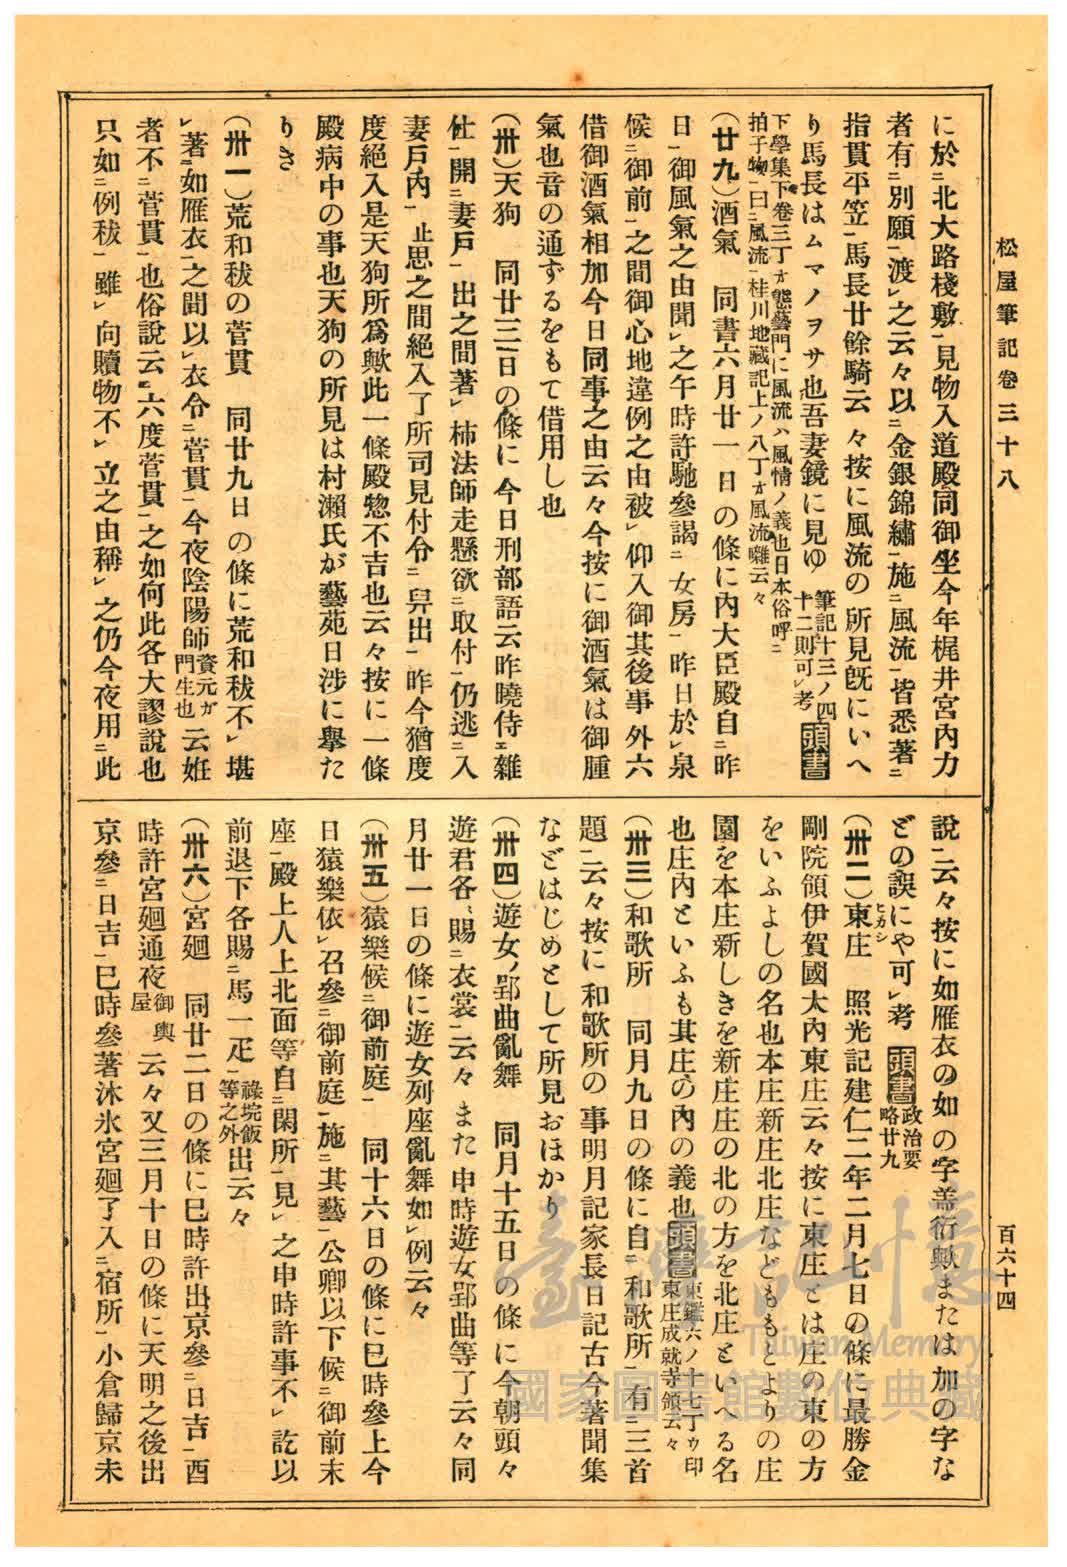 松屋筆記卷三十八
百六十四
に於ニ北大路棧敷一見物入道殿同御坐今年梶井宮內力
者有ニ別願一渡レ之云々以ニ金銀錦繡一施ニ風流一皆悉著ニ
指貫平笠一馬長廿餘騎云々按に風流の所見旣にいへ
り馬長はムマノヲサ也吾妻鏡に見ゆ 筆記十三ノ四十二則可レ考 頭書
下學集下卷三丁オ態藝門に風流ハ風情ノ義也日本俗呼ニ
拍子物一曰ニ風流一桂川地藏記上ノ八丁オ風流囃云々
(廿九)酒氣 同書六月廿一日の條に內大臣殿自ニ昨
日一御風氣之由聞レ之午時許馳參謁ニ女房一昨日於レ泉
候ニ御前一之間御心地違例之由被レ仰入御其後事外六
借御酒氣相加今日同事之由云々今按に御酒氣は御腫
氣也音の通ずるをもて借用し也
(卅)天狗 同廿三日の條に今日刑部語云昨曉侍ヱ雜
仕一開ニ妻戶一出之間著レ柿法師走懸欲ニ取付一仍逃ニ入
妻戶內一止思之間絕入了所司見付令ニ舁出一昨今猶度
度絕入是天狗所爲歟此一條殿惣不吉也云々按に一條
殿病中の事也天狗の所見は村瀨氏が藝苑日涉に擧た
りき
(卅一)荒和秡の菅貫 同廿九日の條に荒和秡不レ堪
レ著ニ如雁衣一之間以レ衣令ニ菅貫一今夜陰陽師資元ガ門生也云姙
者不ニ菅貫一也俗說云ニ六度菅貫一之如何此各大謬說也
只如ニ例秡一雖レ向贖物不レ立之由稱レ之仍今夜用ニ此
說一云々按に如雁衣の如の字善衍歟または加の字な
どの誤にや可レ考 頭書 政治要略廿九
(卅二)東庄ヒカシ 照光記建仁二年二月七日の條に最勝金
剛院領伊賀國大內東庄云々按に東庄とは庄の東の方
をいふよしの名也本庄新庄北庄などももとよりの庄
園を本庄新しきを新庄庄の北の方を北庄といへる名
也庄內といふも其庄の內の義也 頭書 東鑑六ノ十七丁ウ印東庄成就寺領云々
(卅三)和歌所 同月九日の條に自ニ和歌所一有ニ三首
題一云々按に和歌所の事明月記家長日記古今著聞集
などはじめとして所見おほかり
(卅四)遊女ノ郢曲亂舞 同月十五日の條に今朝頭々
遊君各ゝ賜ニ衣裳一云々また申時遊女郢曲等了云々同
月廿一日の條に遊女列座亂舞如レ例云々
(卅五)猿樂候ニ御前庭一 同十六日の條に巳時參上今
日猿樂依レ召參ニ御前庭一施ニ其藝一公卿以下候ニ御前末
座一殿上人上北面等自ニ閑所一見レ之申時許事不レ訖以
前退下各賜ニ馬一疋一祿埦飯等之外出云々
(卅六)宮廻 同廿二日の條に巳時許出京參ニ日吉一酉
時許宮廻通夜御輿屋云々又三月十日の條に天明之後出
京參ニ日吉一巳時參著沐氷宮廻了入ニ宿所一小倉歸京未
臺灣記憶
Taiwan Memory
國家圖書館數位典藏